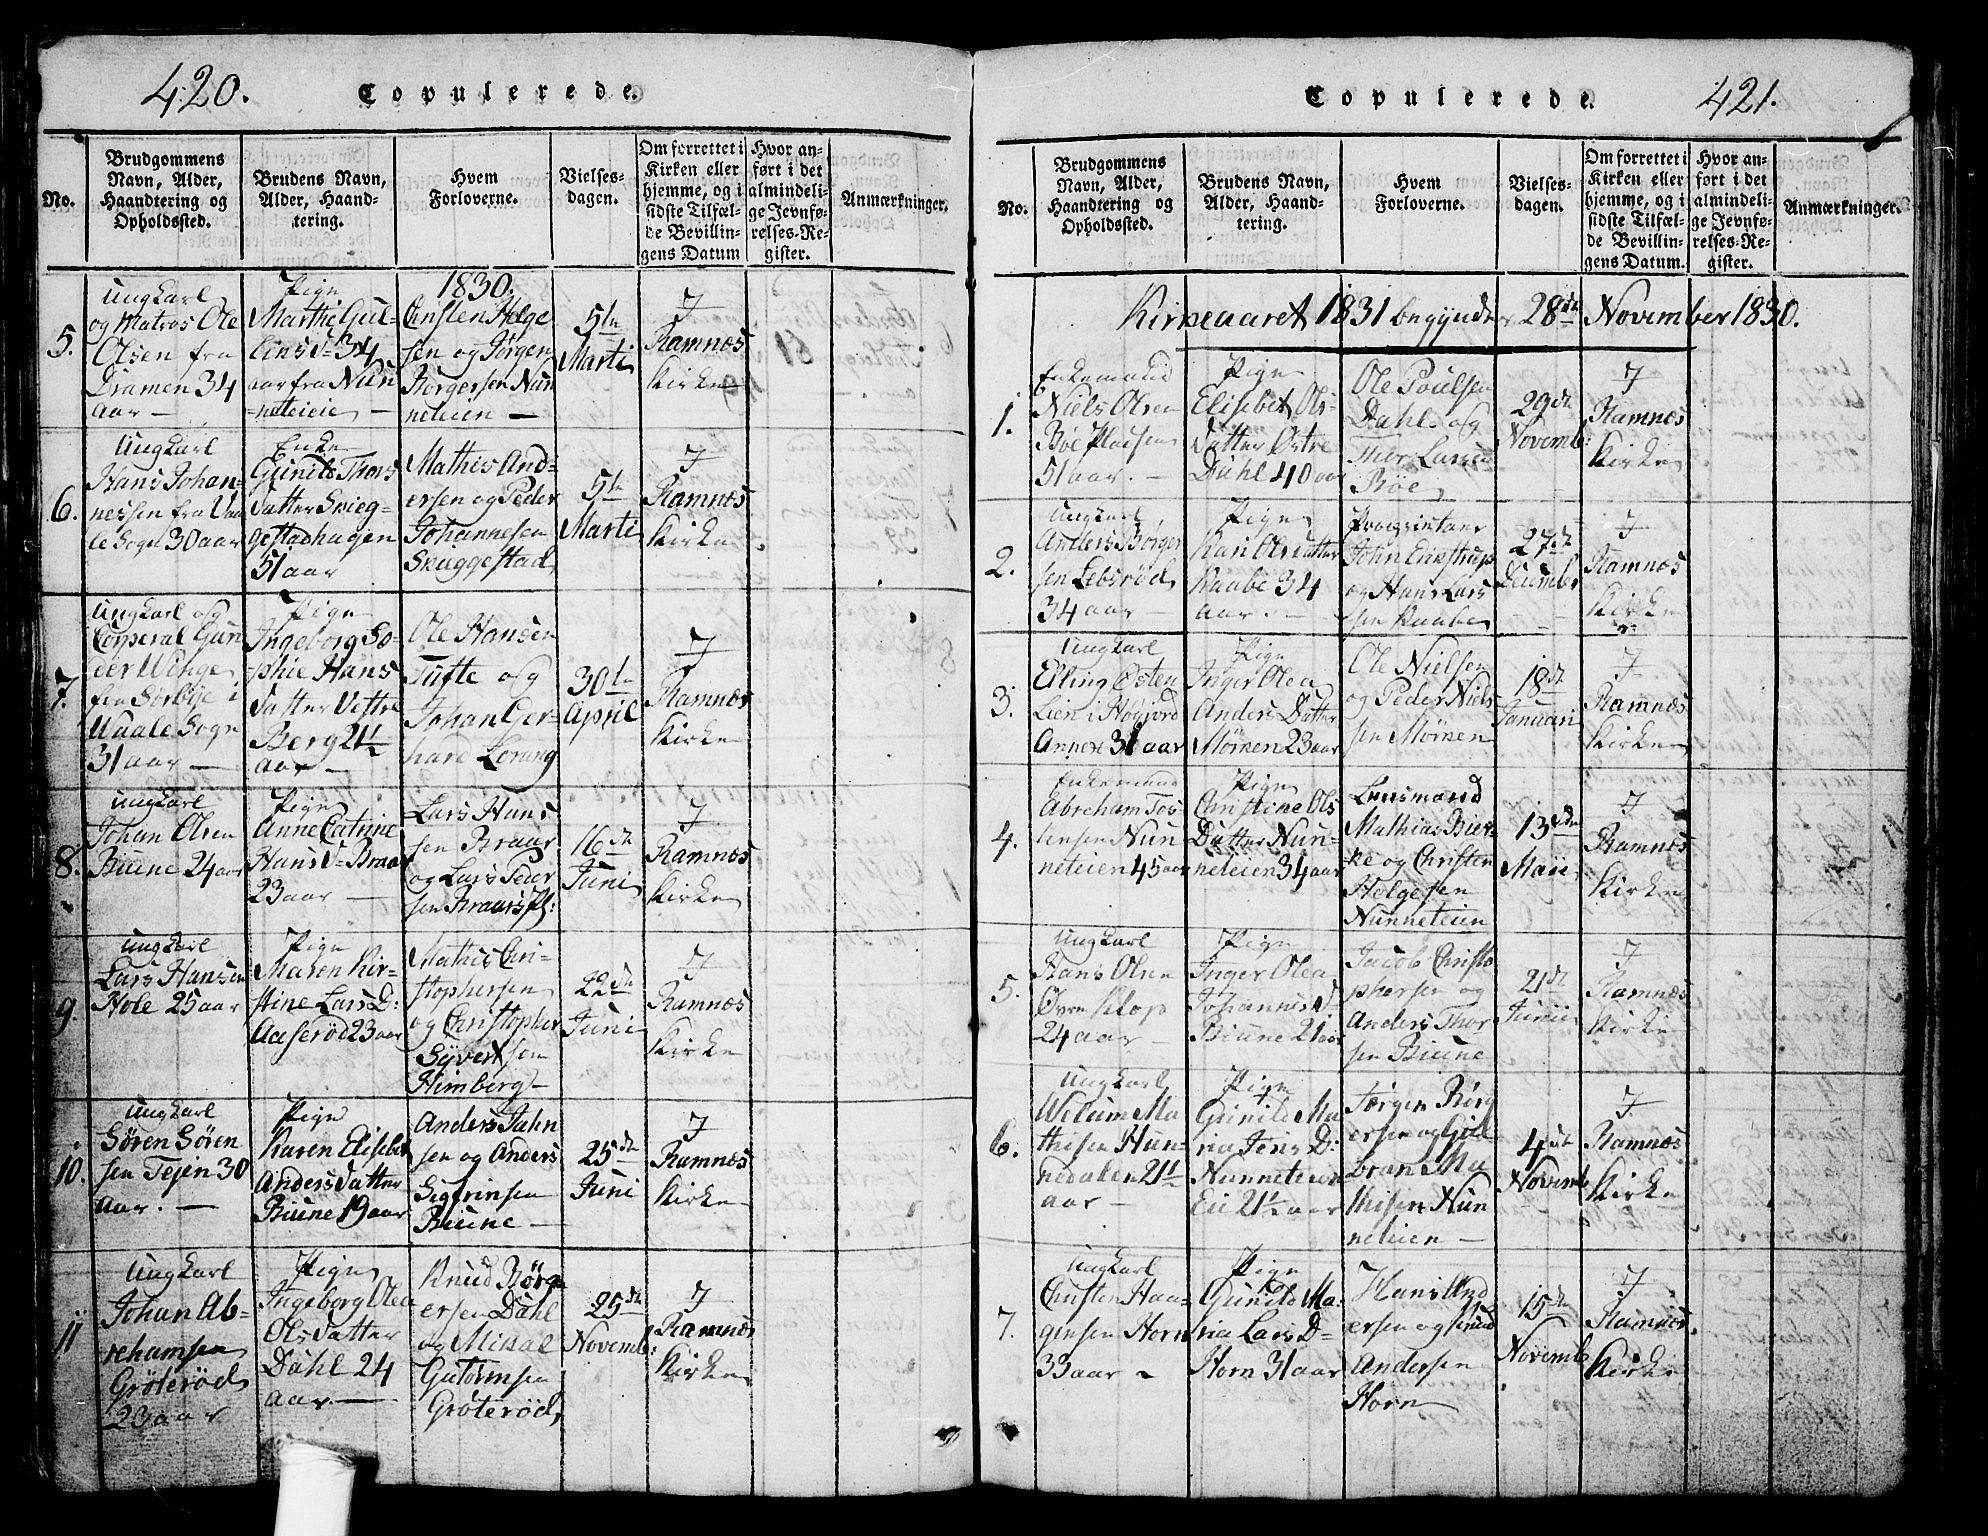 420. Copulerede.
No.
Brudgommens
Navn, Alder,
Haandtering og
Opholdssted.
Brudens Navn,
Alder, Haand-
tering.
Hvem
Forloverne.
Vielses-
dagen.
Om forrettet i
Kirken eller
hjemme, og i
sidste Tilfæl-
de Bevillin-
gens Datum
Hvor an-
ført i det
almindeli-
ge Jevnfø-
relses-Re-
gister.
Anmærkninger.
1830.
5.
Ungkarl
og Matros Ole
Olsen fra
Dramen 34
aar —
Pige
Marthe Gul-
linsd= 34
aar fra Nun
=neteieie —
Christen Helge
sen og Jørgen
Børgersen Nun
neteien —
5te
Marti
I
Ramnæs
Kirke
6.
Ungkarl
Hans Johan-
nessen fra Vaa
le Sogn 30 aar
Enke
Gunild Thors
Datter Skieg-
gestadhagen
51 aar
Mathis And-
ersen og Peder
Johannesen
Skieggestad
5te
Marti
I
Ramnæs
Kirke
7.
Ungkarl og
Corperal Gun
der Winge
fra Sørbÿe i
Waale Sogn
31 aar —
Pige
Ingeborg So-
phie Hans
Datter Vestre
Berg 21½
aar —
Ole Hansen
Tufte og
Johan Ger-
hard Lorang
30te
April
I
Ramnæs
Kirke
8.
Ungkarl
Johan Olsen
Biune 24 aar
Pige
Anne Catrine
Hans D= Braar
23 aar —
Lars Hans
sen Braar
og Lars Peder
sen Braars Pl:
16de
Juni
I
Ramnæs
Kirke
9.
Ungkarl
Lars Hansen
Hole 25 aar
Pige
Maren Kir-
stine Lars D:
Aaserød 23 aar
Mathis Chri-
stophersen
og Christopher
Syvertsen
Himberg —
22de
Juni
I
Ramnæs
Kirke
10.
Ungkarl
Søren Søren
sen Tejen 30
aar. —
Pige
Karen Elisebet
Anders Datter
Biune 19 aar
Anders Jahn
sen og Anders
Sigfrinsen
Biune —
25de
Juni
I
Ramnæs
Kirke
11
Ungkarl
Johan Ab-
rehamsen
Grøterød
23 aar
Pige
Ingeborg Olea
Ols Datter
Dahl 24
aar. —
Knud Børg
ersen Dahl
og Mikkal
Gutormsen
Grøterød
25de
Novemb:
I
Ramnæs
Kirke
Copulerede. 421.
No.
Brudgommens
Navn, Alder,
Haandtering og
Opholdssted.
Brudens Navn,
Alder, Haand-
tering.
Hvem
Forloverne.
Vielses-
dagen.
Om forrettet i
Kirken eller
hjemme, og i
sidste Tilfæl-
de Bevillin-
gens Datum.
Hvor an-
ført i det
almindeli-
ge Jevnfø-
relses-Re-
gister.
Anmærkninger.
Kirkeaaret 1831 begynder 28de November 1830.
1.
Enkemand
Niels Olsen
Bøe Pladsen
51 aar. —
Pige
Elisebet Ols-
Datter Østre
Dahl 40 aar
Ole Poulsen
Dahl og
Thor Larsen
Bøe
29de
Novemb:
I
Ramnæs
Kirke
2.
Ungkarl
Anders Børger
sen Lebsrød
34 aar —
Pige
Kari Olsdatter
Raabe 34
aar. —
John Enestrup
og Hans Lars
sen Raabe
27de
December
I
Ramnæs
Kirke
3.
Ungkarl
Elling Østen
Lien i Høyjord
Annex 31 aar
Pige
Inger Olea
Anders Datter
Møinen 23 aar
Ole Nielsen
og Peder Niels
sen Møinen
18de
Januari
I
Ramnæs
Kirke
4.
Enkemand
Abreham Tos
tensen Nun
neteien 45 aar
Pige
Christine Ols
Datter Nun-
neteien 34 aar
Lensmænd
Mathias Bier-
ke og Christen
Helgesen
Nunneteien
13de
Maii
I
Ramnæs
Kirke
5.
Ungkarl
Hans Olsen
Øvre Klop
24 aar —
Pige
Inger Olea
Johannis D
Biune 21 aar
Jacob Christo
phersen og
Anders Thor
sen Biune
21de
Junii
I
Ramnæs
Kirke
6.
Ungkarl
Wilum Ma
thisen Hun-
nedalen 21½
aar —
Pige
Gunild Ma
ria Jens D:
Nunneteien
Eie 21½ aar
Jørgen Børg
ersen og Gul
bran Ma
thisen Nun
neteien —
4de
Novemb
I
Ramnæs
Kirke
7.
Ungkarl
Christen Haa-
gensen Horn
33 aar —
Pige
Gunild Ma-
ria Lars D=
Horn 31 aar
Hans And
ersen og Knud
Andersen
Horn
15de
Novemb
I
Ramnæs
Kirke